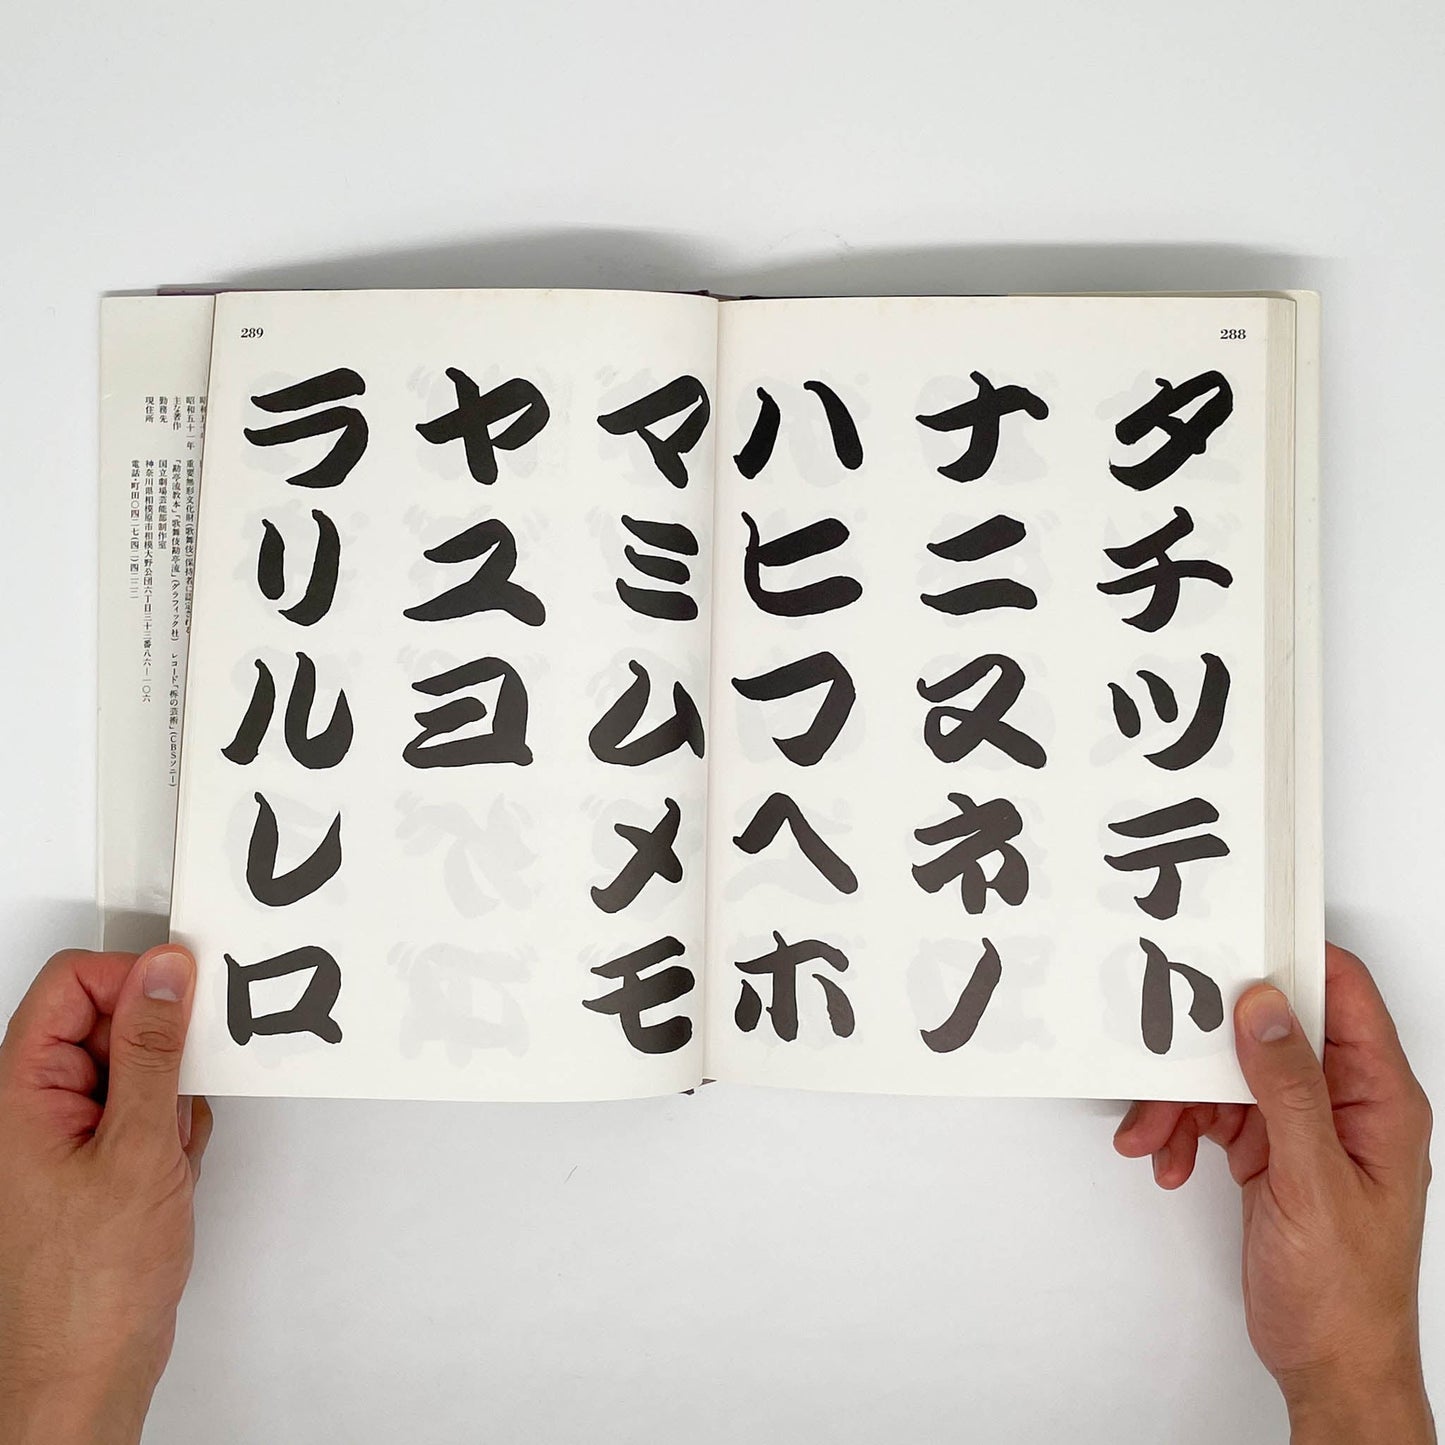 288
タチツテト
ナニヌネノ
ハヒフヘホ
289
マミムメモ
ヤユヨ
ラリルレロ
昭和五十一年
重要無形文化財(歌舞伎)保持者に認定される
主な著作
「勘亭流教本」「歌舞伎勘亭流」(グラフィック社) レコード「柝の芸術」(CBSソニー)
勤務先
国立劇場芸能部制作室
現住所
神奈川県相模原市相模大野公団六丁目三十三番八六―一〇六
電話・町田〇四二七(四二)四二二二